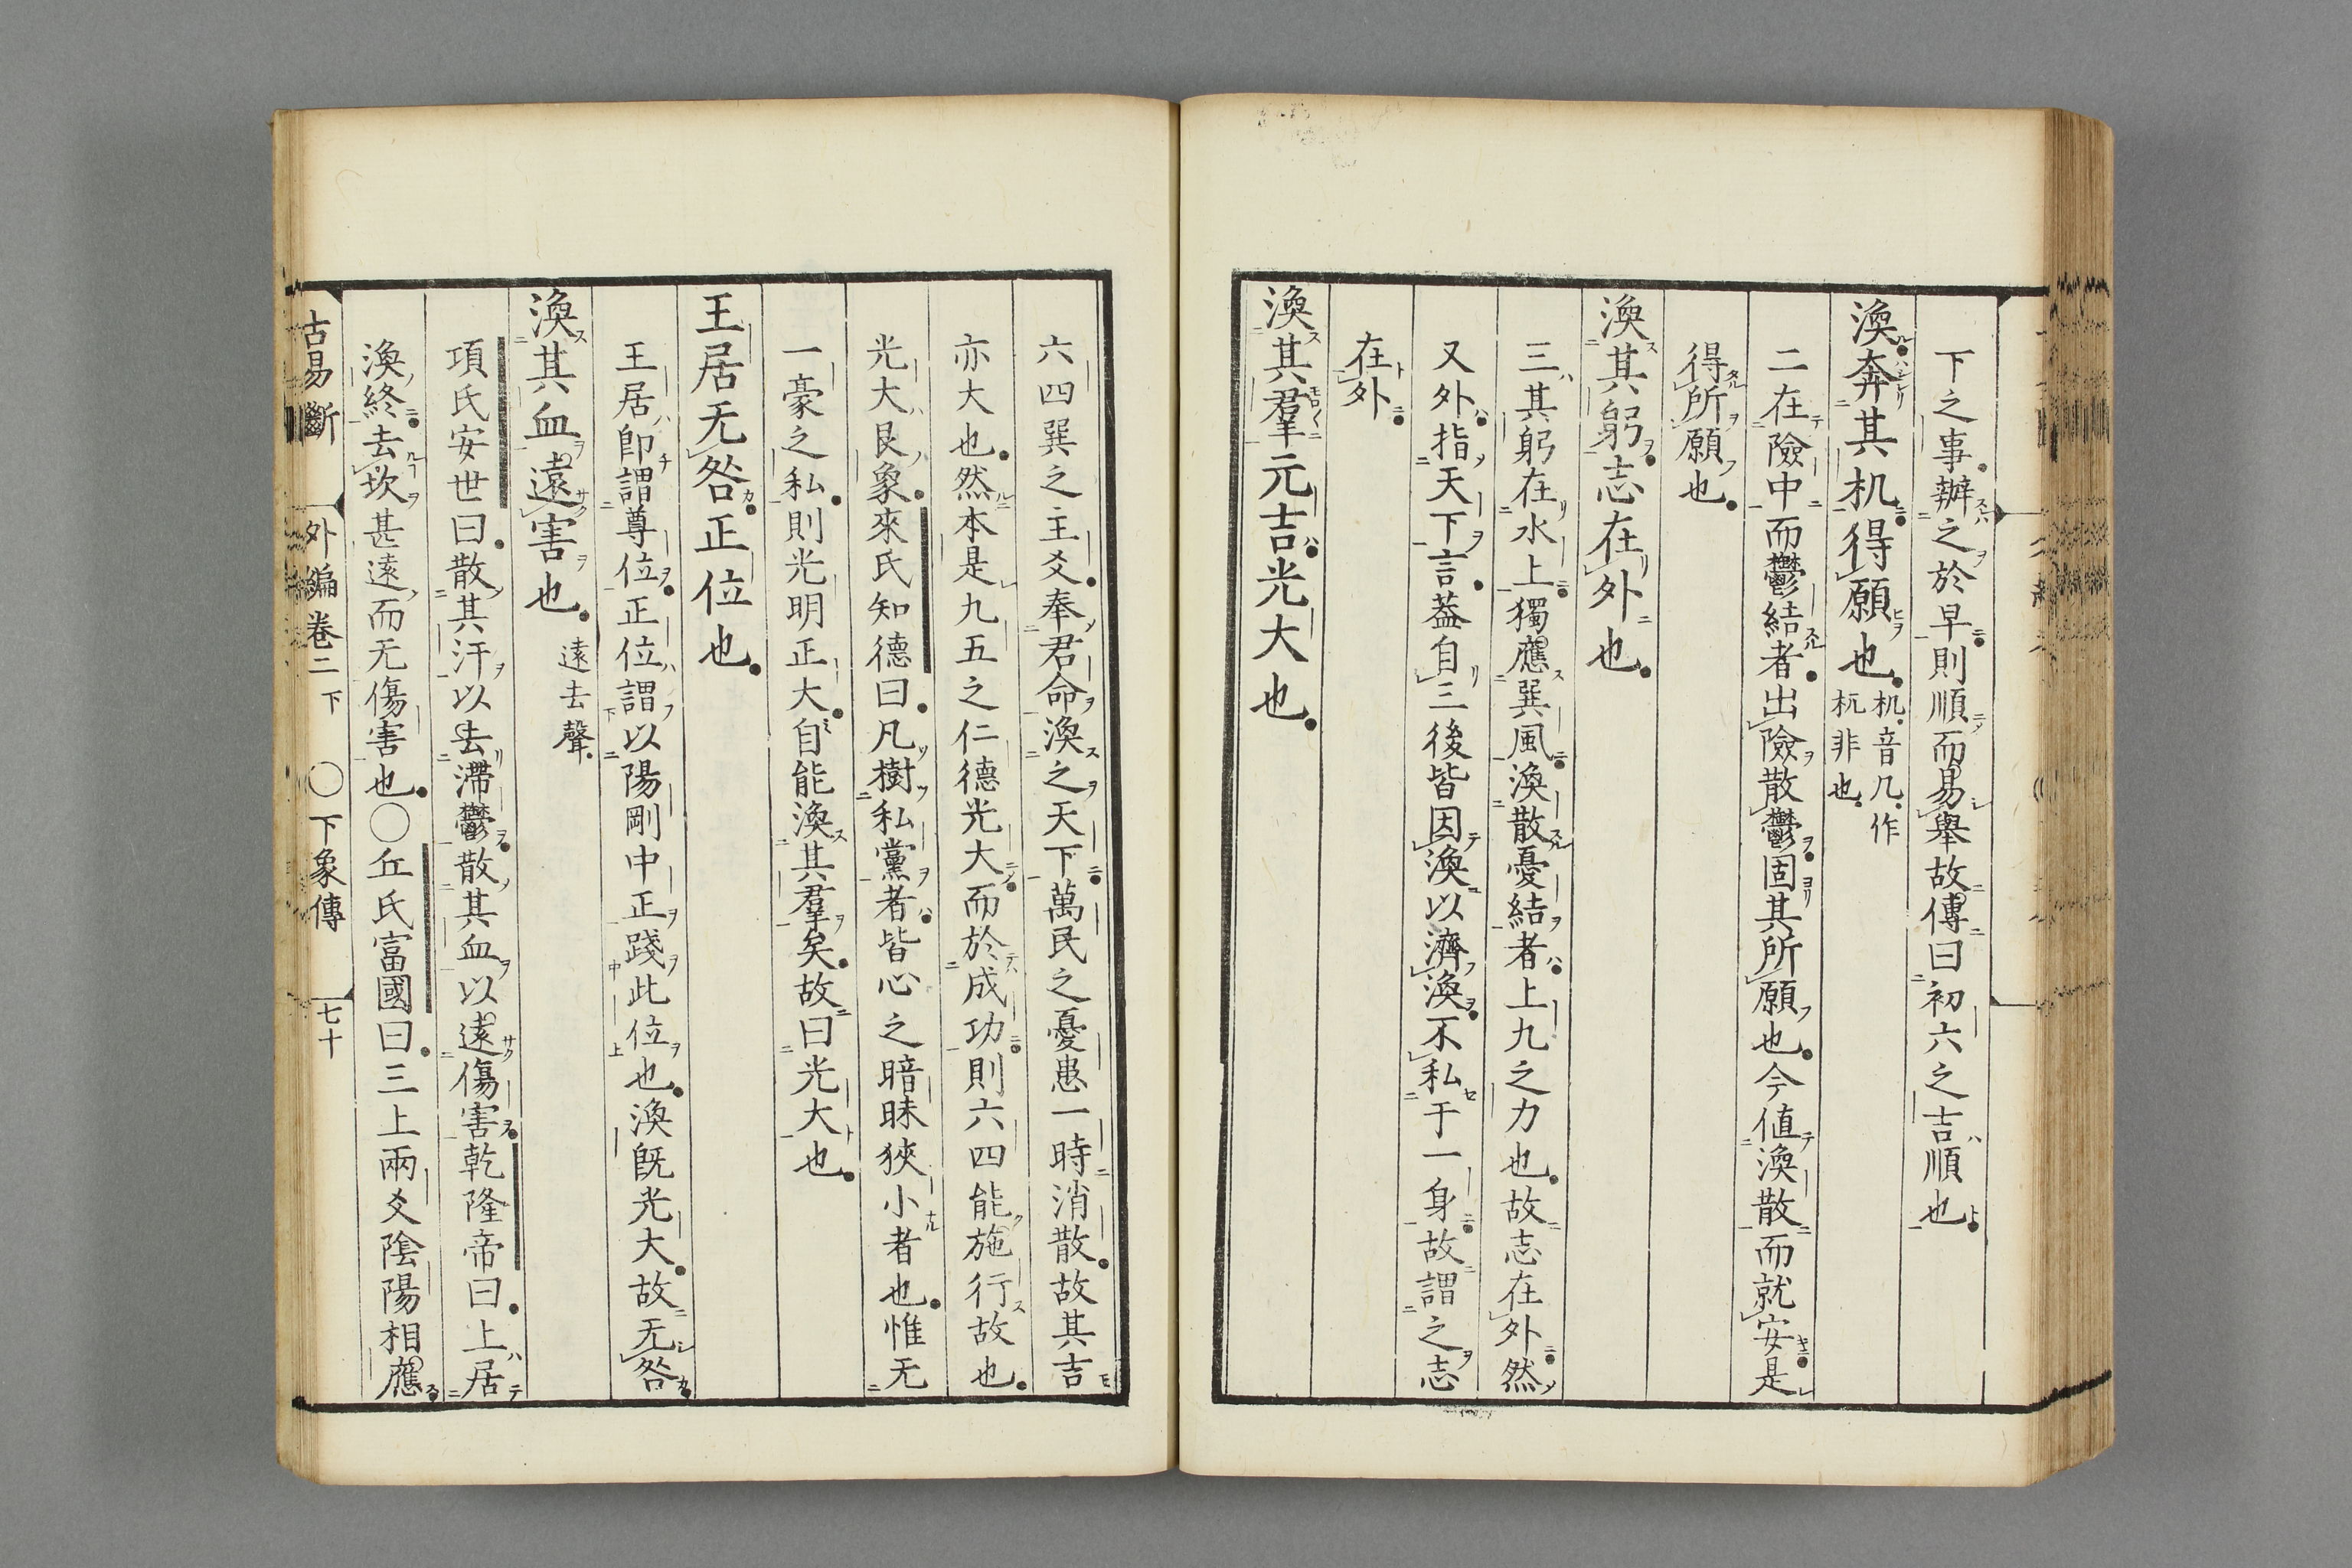 下之事辦之於早則順而易舉故傳曰初六之吉順也
渙奔其机得願也 机音几作
杌非也
二在險中而鬱結者出險散鬱固其所願也今値渙散而就安是
得所願也
渙其躬志在外也
三其躬在水上獨應巽風渙散憂結者上九之力也故志在外然
又外指天下言葢自三後皆因渙以濟渙不私于一身故謂之志
在外
渙其羣元吉光大也
六四巽之主爻奉君命渙之天下萬民之憂患一時消散故其吉
亦大也然本是九五之仁德光大而於成功則六四能施行故也
光大艮象來氏知德曰凡樹私黨者皆心之暗昧狹小者也惟无
一豪之私則光明正大自能渙其羣矣故曰光大也
王居无咎正位也
王居卽謂尊位正位謂以陽剛中正踐此位也渙旣光大故无咎
渙其血遠害也 遠去聲
項氏安世曰散其汗以去滯鬱散其血以遠傷害乾隆帝曰上居
渙終去坎甚遠而无傷害也○丘氏富國曰三上兩爻陰陽相應
古易斷 外編卷二下 ○下象傳 七十